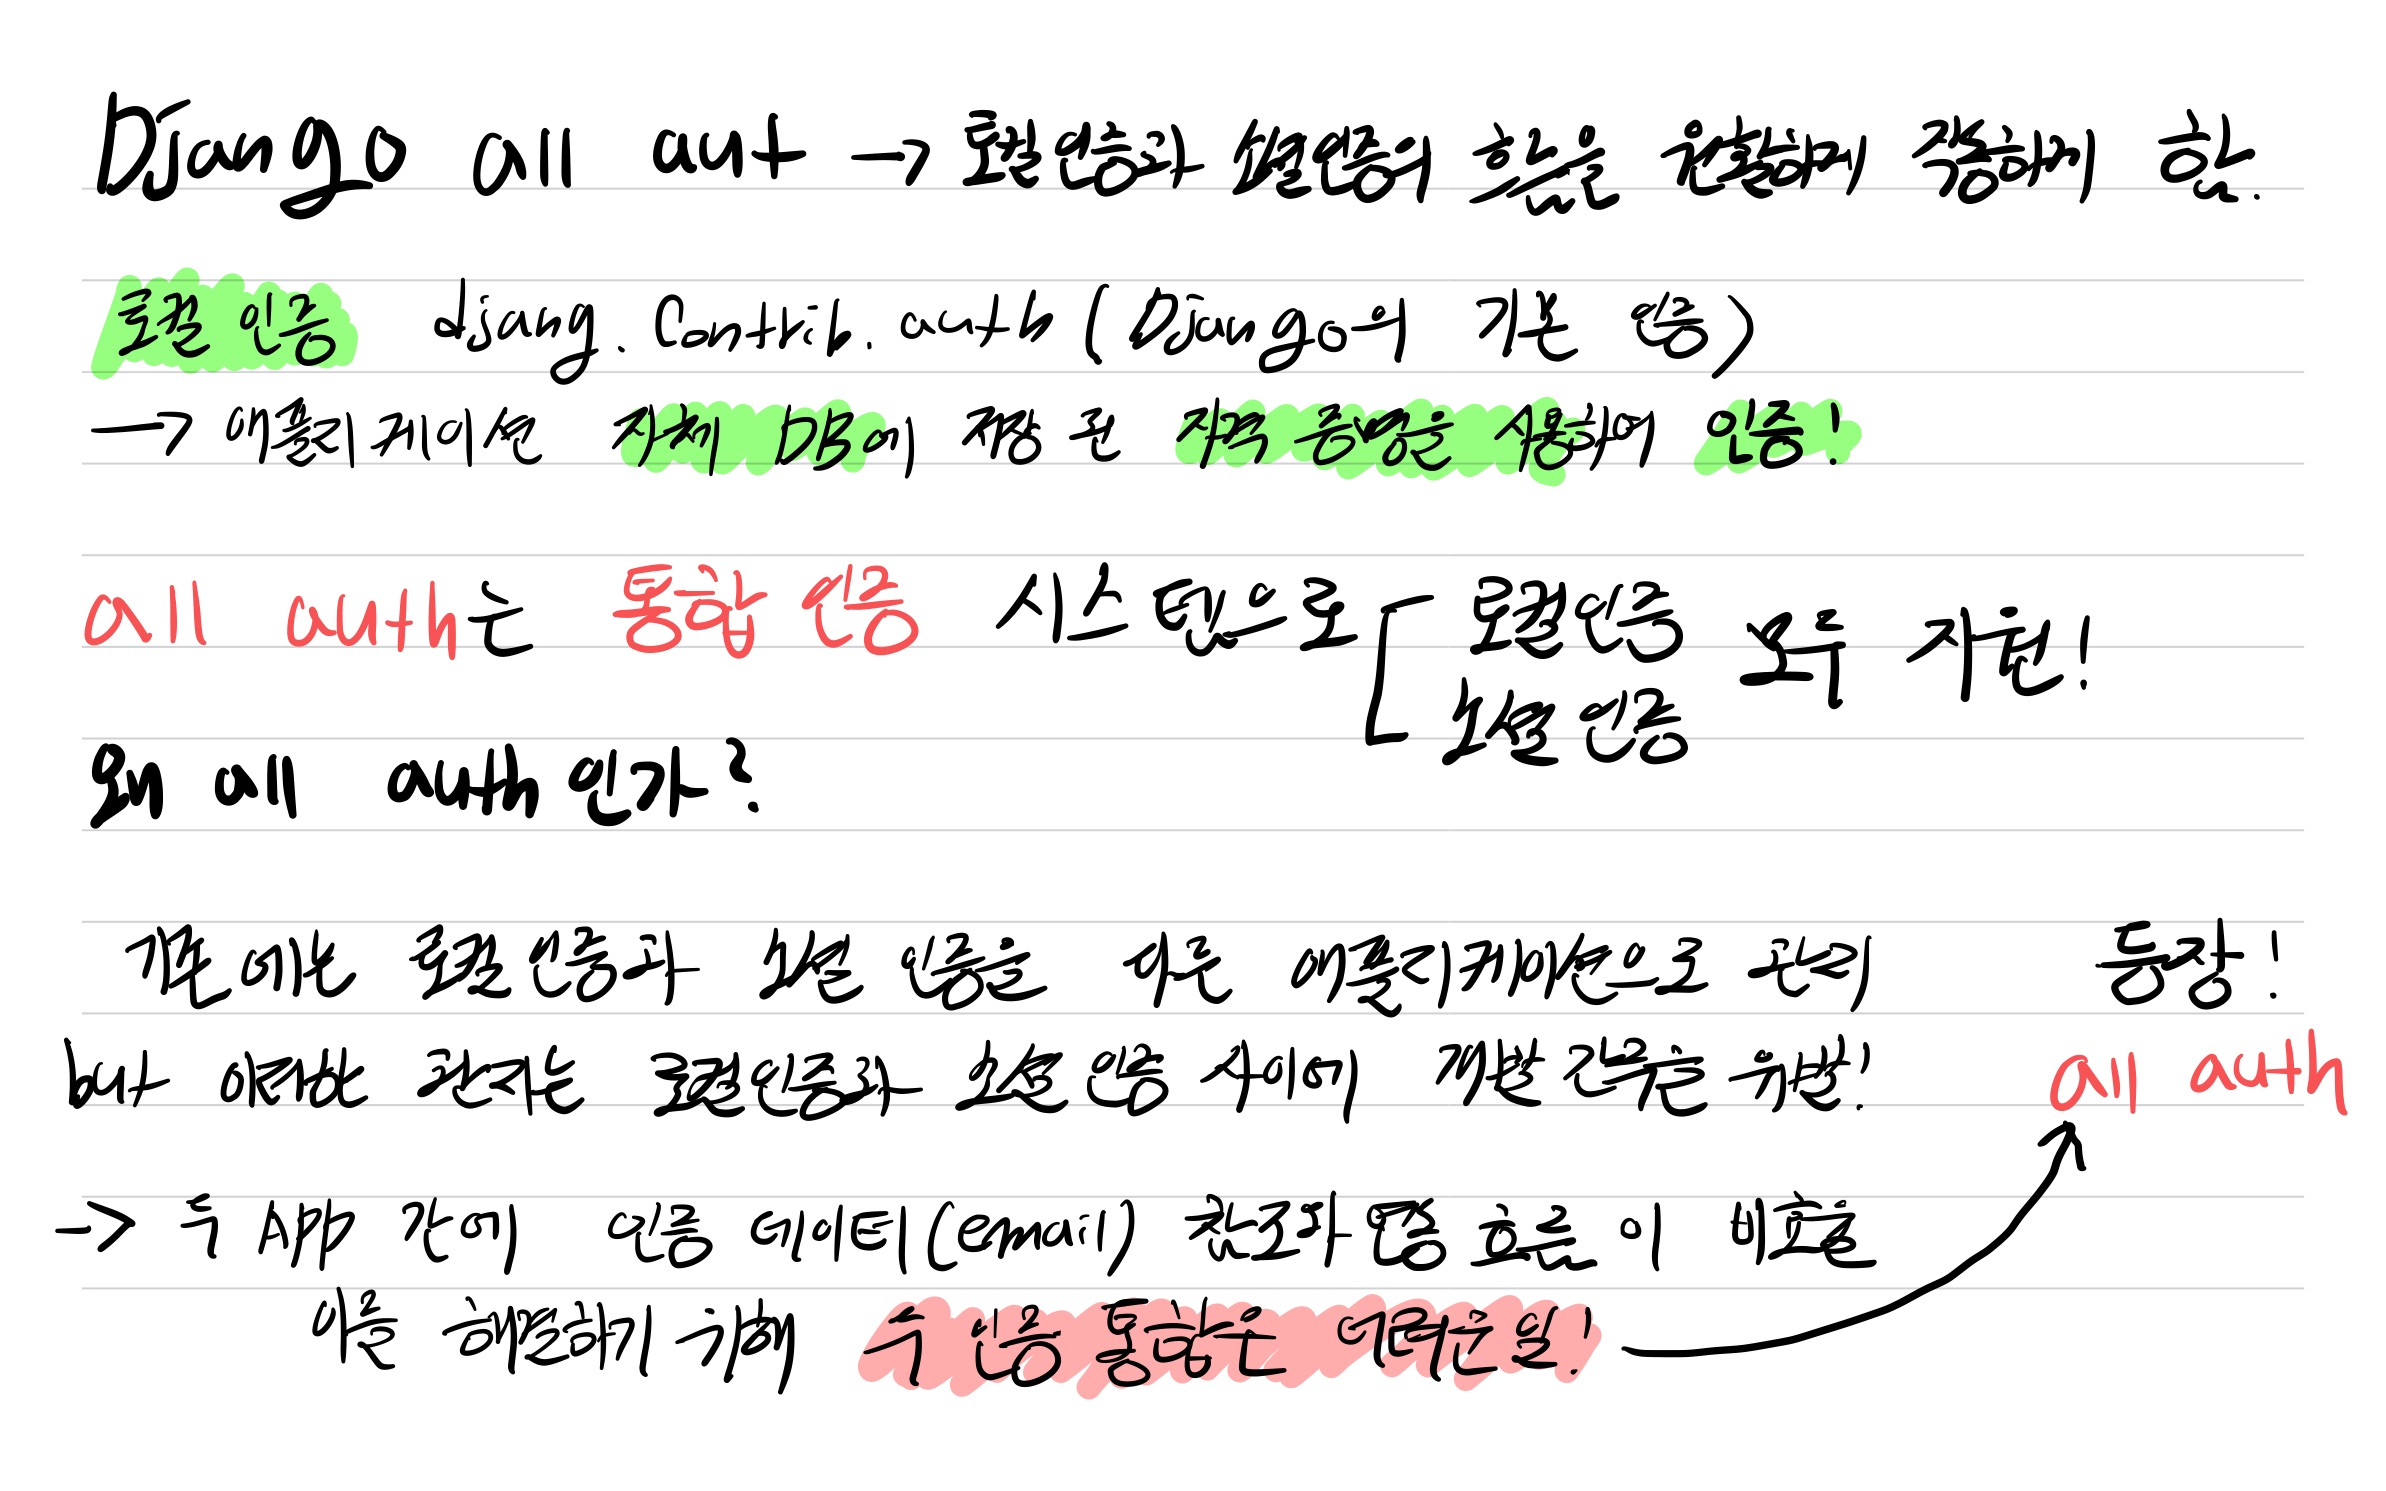 Django all aut → 로컬 인증과 소셜 인증의 흐름을 원활하게 통합해야 함.
로컬 인증 djang. Contrib. auth (Django의 기본 인증)
→ 애플리케이션 자체 내장이 된 자격 증명을 사용하여 인증!
all auth는 통합 인증 시스템으로 [ 로컬인증 모두 지원!
소셜인증
왜 all auth 인가?
기존에는 로컬 인증과 소셜 인증을 다른 애플리케이션으로 관리 등장!
but 이러한 분리는 로컬인증과 소셜 인증 사이에 개발 간극을 유발! all auth
→ 두 APP 간에 인증 데이터(email) 구조와 인증 흐름이 비호환
이를 해결하기 위해 두 인증 통합한